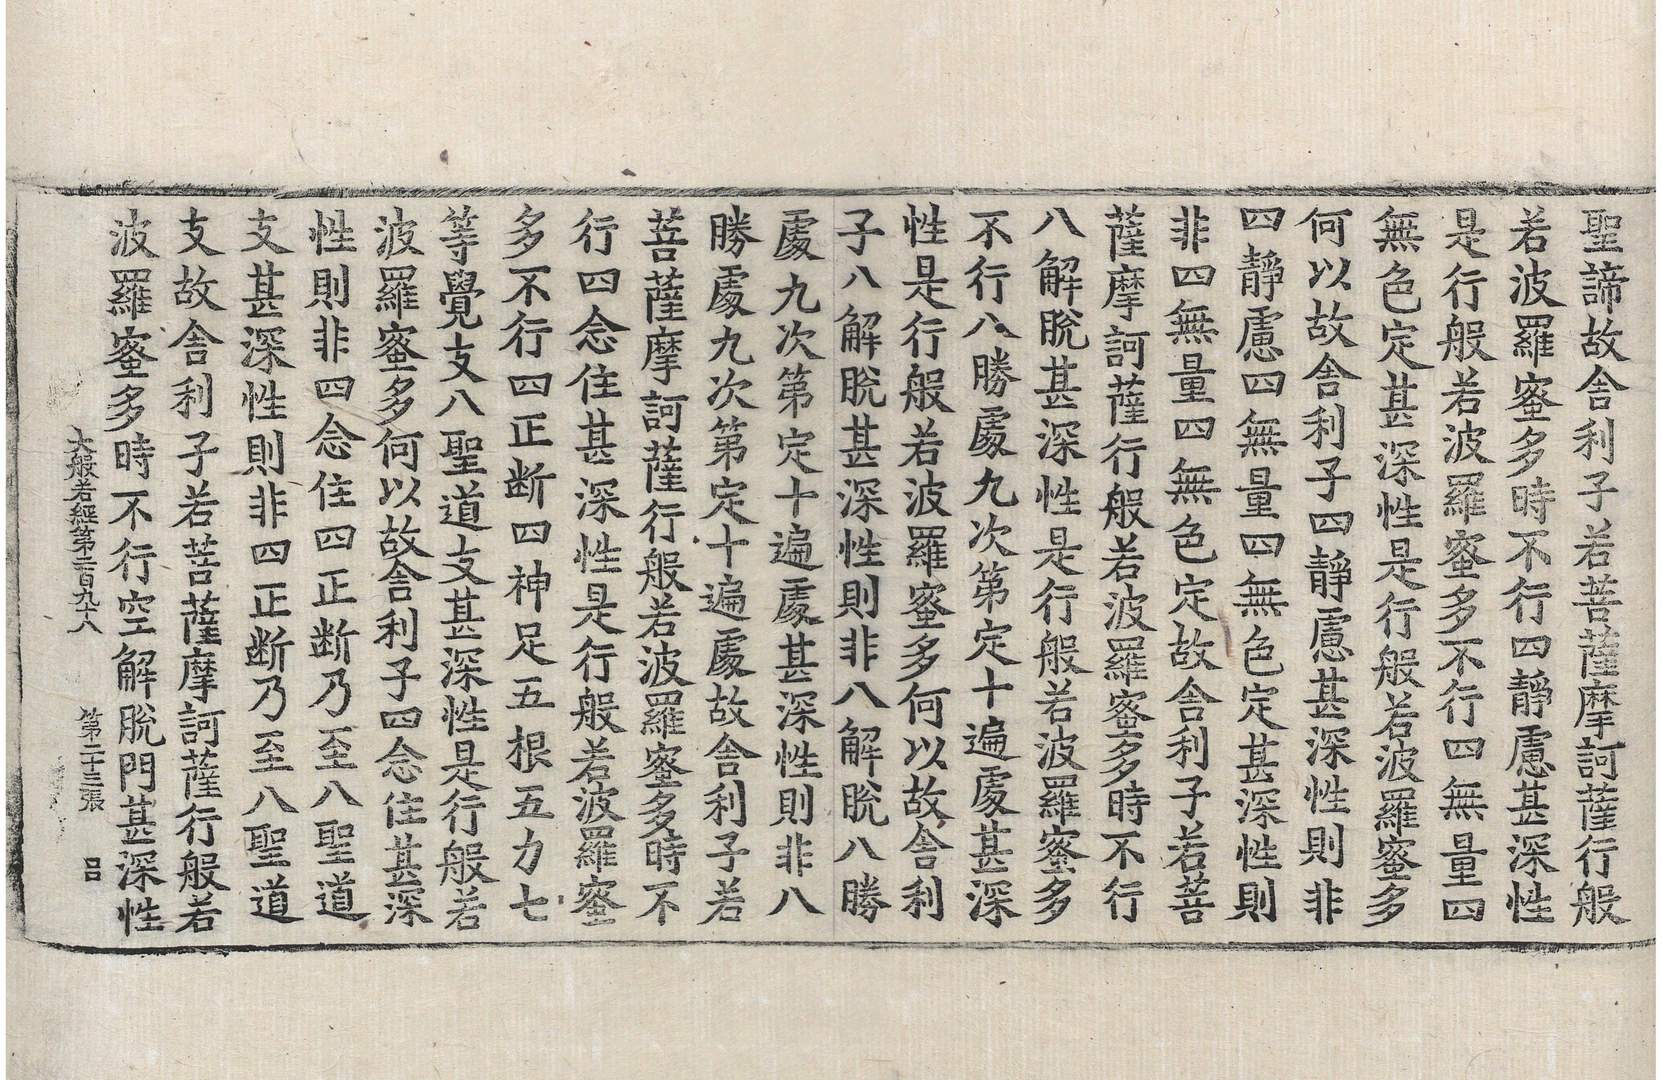 聖諦故舍利子若菩薩摩訶薩行般
若波羅蜜多時不行四靜慮甚深性
是行般若波羅蜜多不行四無量四
無色定甚深性是行般若波羅蜜多
何以故舍利子四靜慮甚深性則非
四靜慮四無量四無色定甚深性則
非四無量四無色定故舍利子若菩
薩摩訶薩行般若波羅蜜多時不行
八解脫甚深性是行般若波羅蜜多
不行八勝處九次第定十遍處甚深
性是行般若波羅蜜多何以故舍利
子八解脫甚深性則非八解脫八勝
處九次第定十遍處甚深性則非八
勝處九次第定十遍處故舍利子若
菩薩摩訶薩行般若波羅蜜多時不
行四念住甚深性是行般若波羅蜜
多不行四正断四神足五根五力七
等覺支八聖道支甚深性是行般若
波羅蜜多何以故舍利子四念住甚深
性則非四念住四正断乃至八聖道
支甚深性則非四正断乃至八聖道
支故舍利子若菩薩摩訶薩行般若
波羅蜜多時不行空解脫門甚深性
大般若經第二百九十八 第二十三張 呂